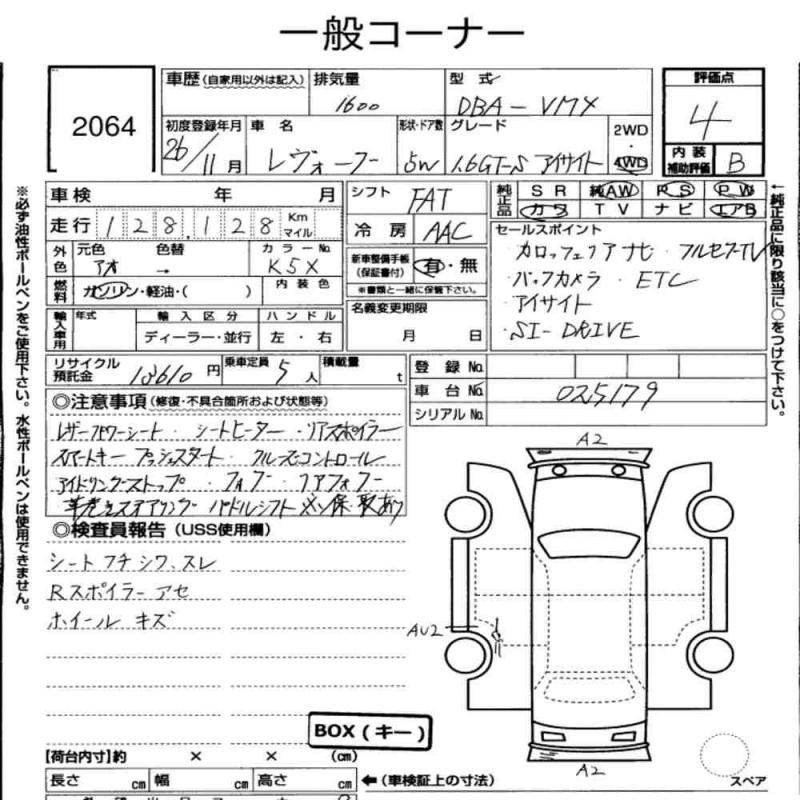 一般コーナー
2064
車歴 (自家用以外は記入)
排気量
1600
型式
DBA-VM4
評価点
4
初度登録年月
26/11月
車名
レヴォーグ
形状・ドア数
5W
グレード
1.6GT-S アイサイト
2WD
・
4WD
内装補助評価
B
車検 年 月
シフト
FAT
純正品
SR 純AW PS PW
カワ TV ナビ エアB
走行 128,128 Km マイル
冷房
AAC
セールスポイント
・カロッツェリアナビ・フルセグTV
・バックカメラ・ETC
・アイサイト
・SI-DRIVE
外色
元色
アオ
色替
→
カラーNo.
K5X
新車整備手帳
(保証書付)
有・無
※書類と一緒に保管下さい。
燃料
ガソリン・軽油・( )
内装色
名義変更期限
月 日
輸入車用
年式
輸入区分
ディーラー・並行
ハンドル
左・右
リサイクル預託金
13610円
乗車定員
5人
積載量
t
登録No.
車台No.
025179
シリアルNo.
◎注意事項 (修復・不具合箇所および状態等)
レザーパワーシート・シートヒーター・リアスポイラー
スマートキー プッシュスタート クルーズコントロール
アイドリングストップ
革巻きステアリング パドルシフト 〆 保・取あり
◎検査員報告 (USS使用欄)
シート フチ シワ、スレ
Rスポイラー アセ
ホイール キズ
A2
AU2
A2
BOX(キー)
スペア
【荷台内寸】約 × × (cm)
長さ cm 幅 cm 高さ cm
←(車検証上の寸法)
※必ず油性ボールペンをご使用下さい。水性ボールペンは使用できません。
←純正品に限り該当に○をつけて下さい。